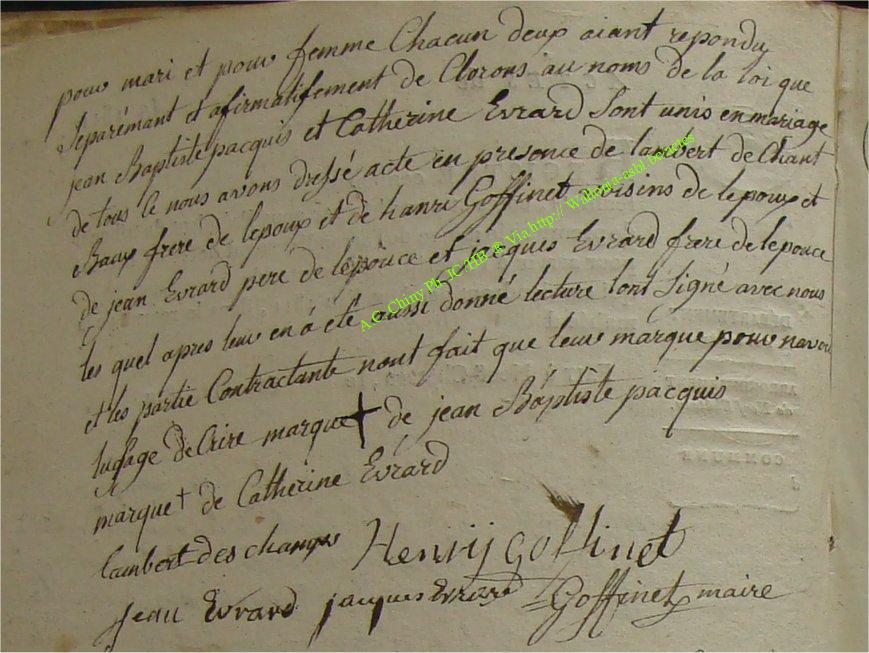 pour mari et pour femme Chacun deux aiant repondu
separémant et afirmatifement de Clorons au noms de la loi que
jean Baptiste pacquis et Catherine Evrard Sont unis en mariage
de tous ce nous avons dressé acte en presence de lambert de Chant
Baux frere de lepoux et de hanri Goffinet voisins de lepoux et
de jean Evrard pere de lepouce et jacques Evrard frere de lepouce
les quel apres leur en á eté aussi donné lecture lont signé avec nous
et les partie Contractante nont fait que leur marque pour navoir
lusage decrire marque + de jean Báptiste pacquis
marque + de Catherine Evrard
lambert des champs Henrij Goffinet
jean Evrard jacques Evrard Goffinet maire
A.G. Chiny Ph. JC HB © Via http:// Wallonia-asbl
COMMUNE